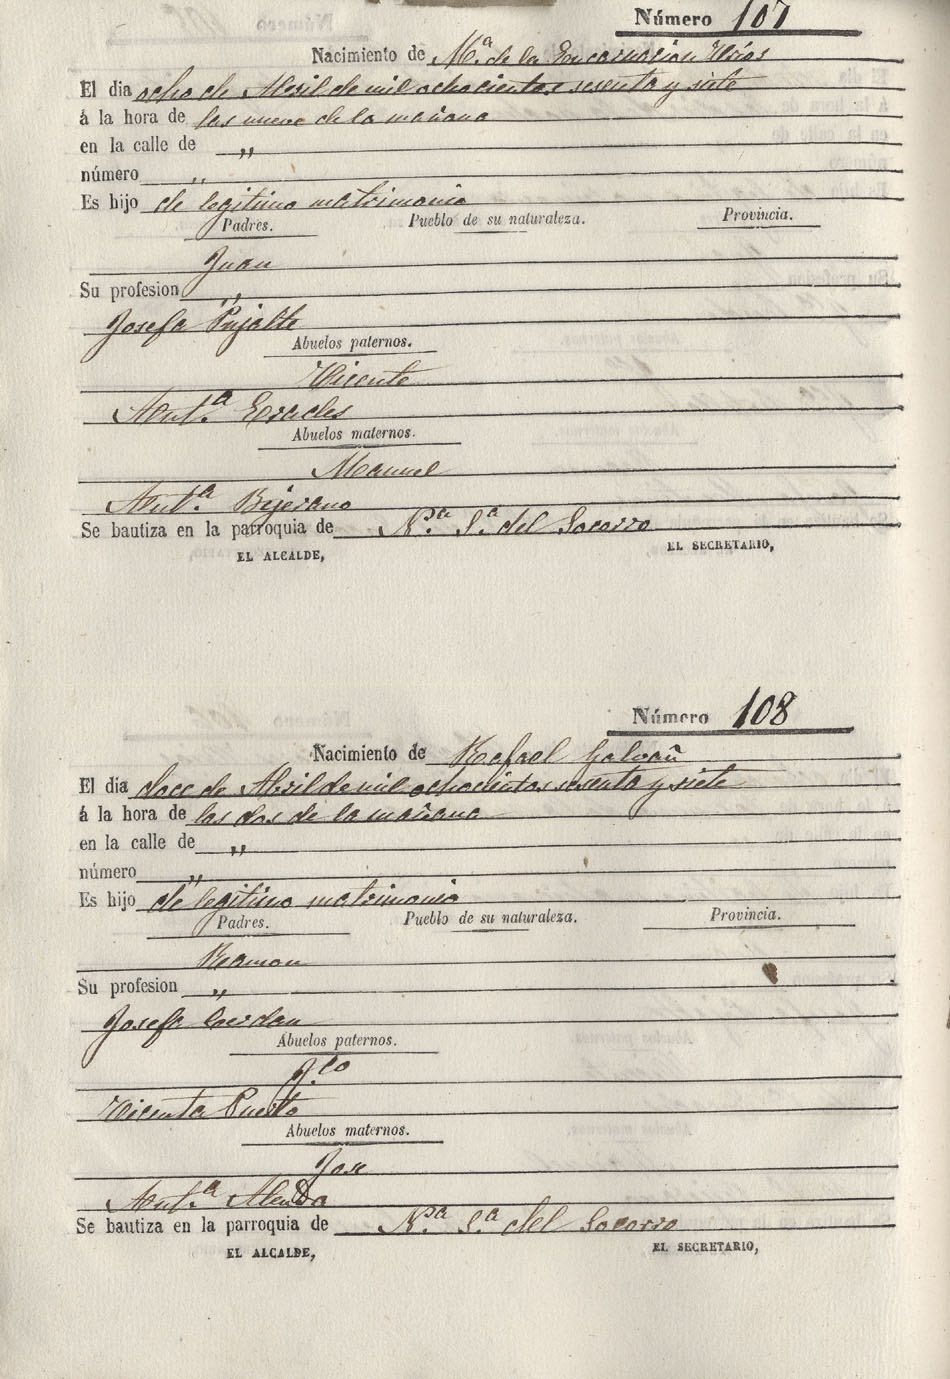 Número 107
Nacimiento de Mª de la Encarnacion Urios
El dia ocho de Abril de mil ochocientos sesenta y siete
á la hora de las nueve de la mañana
en la calle de "
número "
Es hijo de legitimo matrimonio
Padres. Pueblo de su naturaleza. Provincia.
Juan
Su profesion "
Josefa Pujalte
Abuelos paternos.
Vicente
Antª Eracles
Abuelos maternos.
Manuel
Antª Bejerano
Se bautiza en la parroquia de Nª Sª del Socorro
EL ALCALDE, EL SECRETARIO,
Número 108
Nacimiento de Rafael Galvañ
El dia doce de Abril de mil ochocientos sesenta y siete
á la hora de las dos de la mañana
en la calle de "
número "
Es hijo de legitimo matrimonio
Padres. Pueblo de su naturaleza. Provincia.
Ramon
Su profesion "
Josefa Cerdan
Abuelos paternos.
Vicenta Puerto
Abuelos maternos.
Jose
Antª Alenda
Se bautiza en la parroquia de Nª Sª del Socorro
EL ALCALDE, EL SECRETARIO,